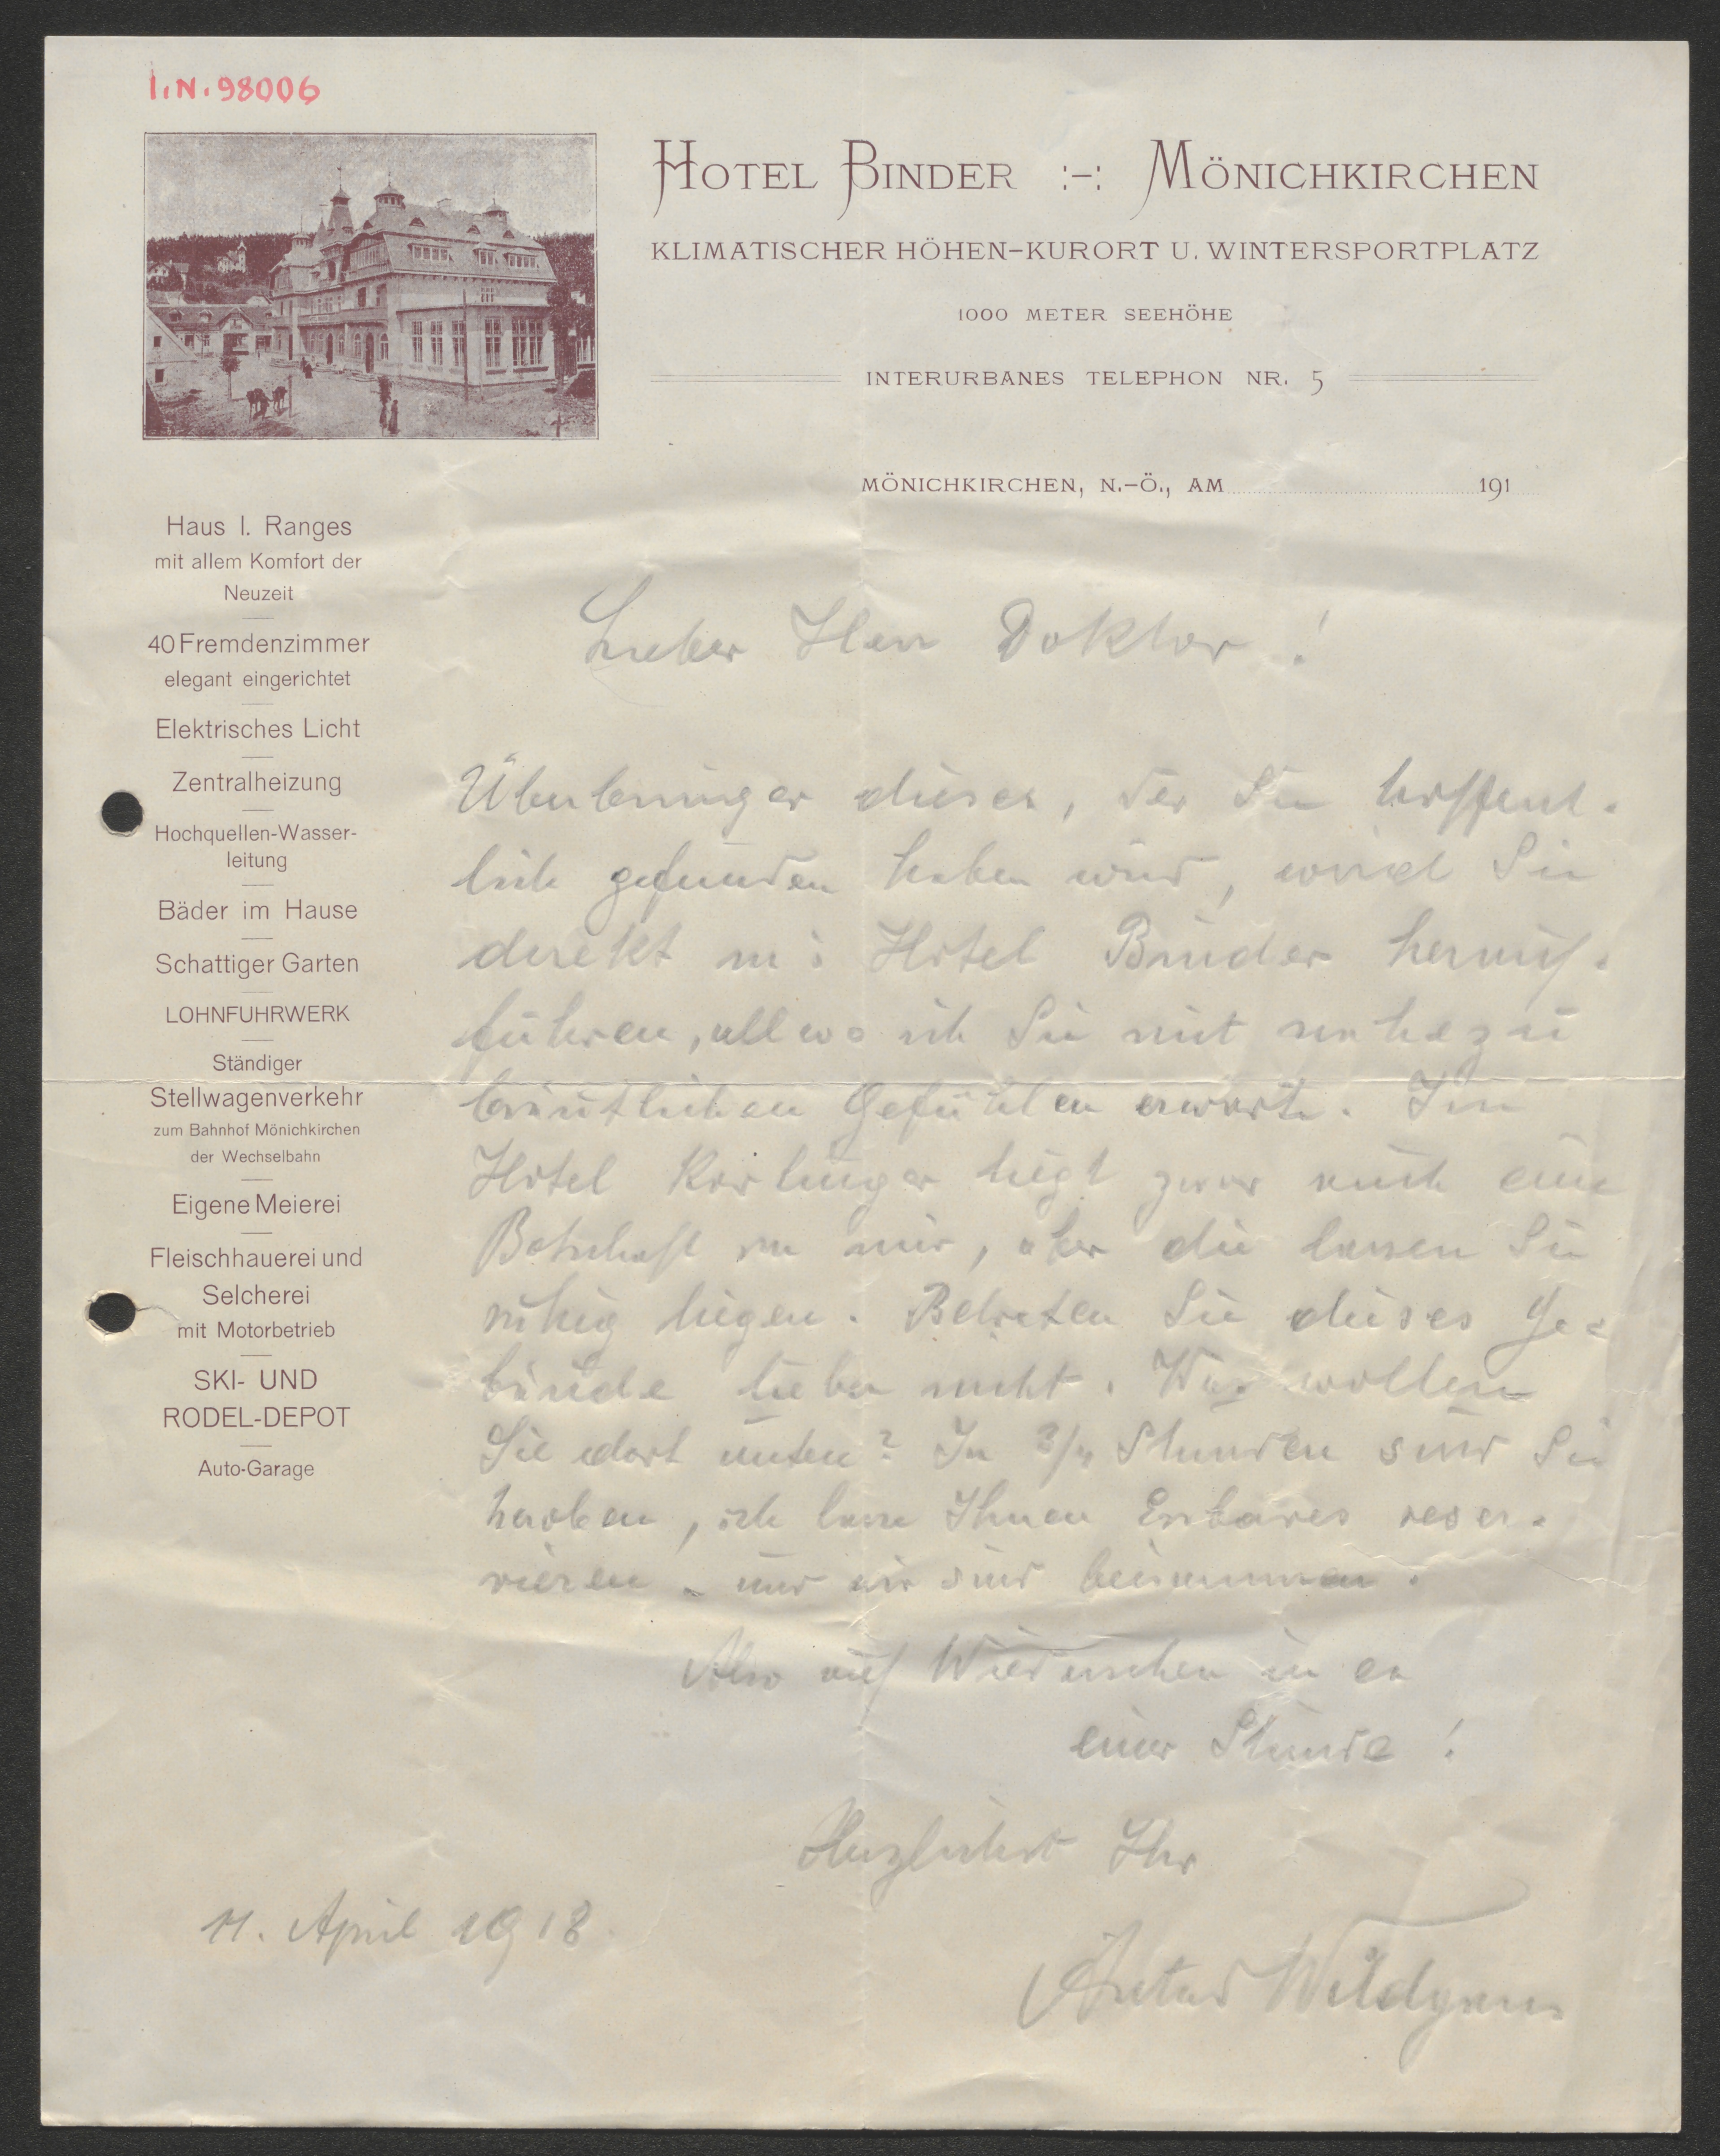 I.N. 98006
HOTEL BINDER :-: MÖNICHKIRCHEN
KLIMATISCHER HÖHEN-KURORT U. WINTERSPORTPLATZ
1000 METER SEEHÖHE
INTERURBANES TELEPHON NR. 5
MÖNICHKIRCHEN, N.-Ö., AM 191
Haus I. Ranges
mit allem Komfort der
Neuzeit
40 Fremdenzimmer
elegant eingerichtet
Elektrisches Licht
Zentralheizung
Hochquellen-Wasser-
leitung
Bäder im Hause
Schattiger Garten
LOHNFUHRWERK
Ständiger
Stellwagenverkehr
zum Bahnhof Mönichkirchen
der Wechselbahn
Eigene Meierei
Fleischhauerei und
Selcherei
mit Motorbetrieb
SKI- UND
RODEL-DEPOT
Auto-Garage
Lieber Herr Doktor!
Überbringer dieses, der Sie hoffent-
lich gefunden haben wird, wird Sie
direkt in's Hotel Binder herauf-
führen, allwo ich Sie mit nahezu
bräutlichen Gefühlen erwarte. Im
Hotel liegt zwar auch eine
Botschaft von mir, aber die lassen Sie
ruhig liegen. Betreten Sie dieses Ge-
bäude lieber nicht. Was wollen
Sie dort unten? In 3/4 Stunden sind Sie
heroben, ich lasse Ihnen Essbares reser-
vieren – und wir sind beisammen.
Also auf Wiedersehen in ca
einer Stunde!
Herzlichst Ihr
Anton Wildgans
11. April 1918.